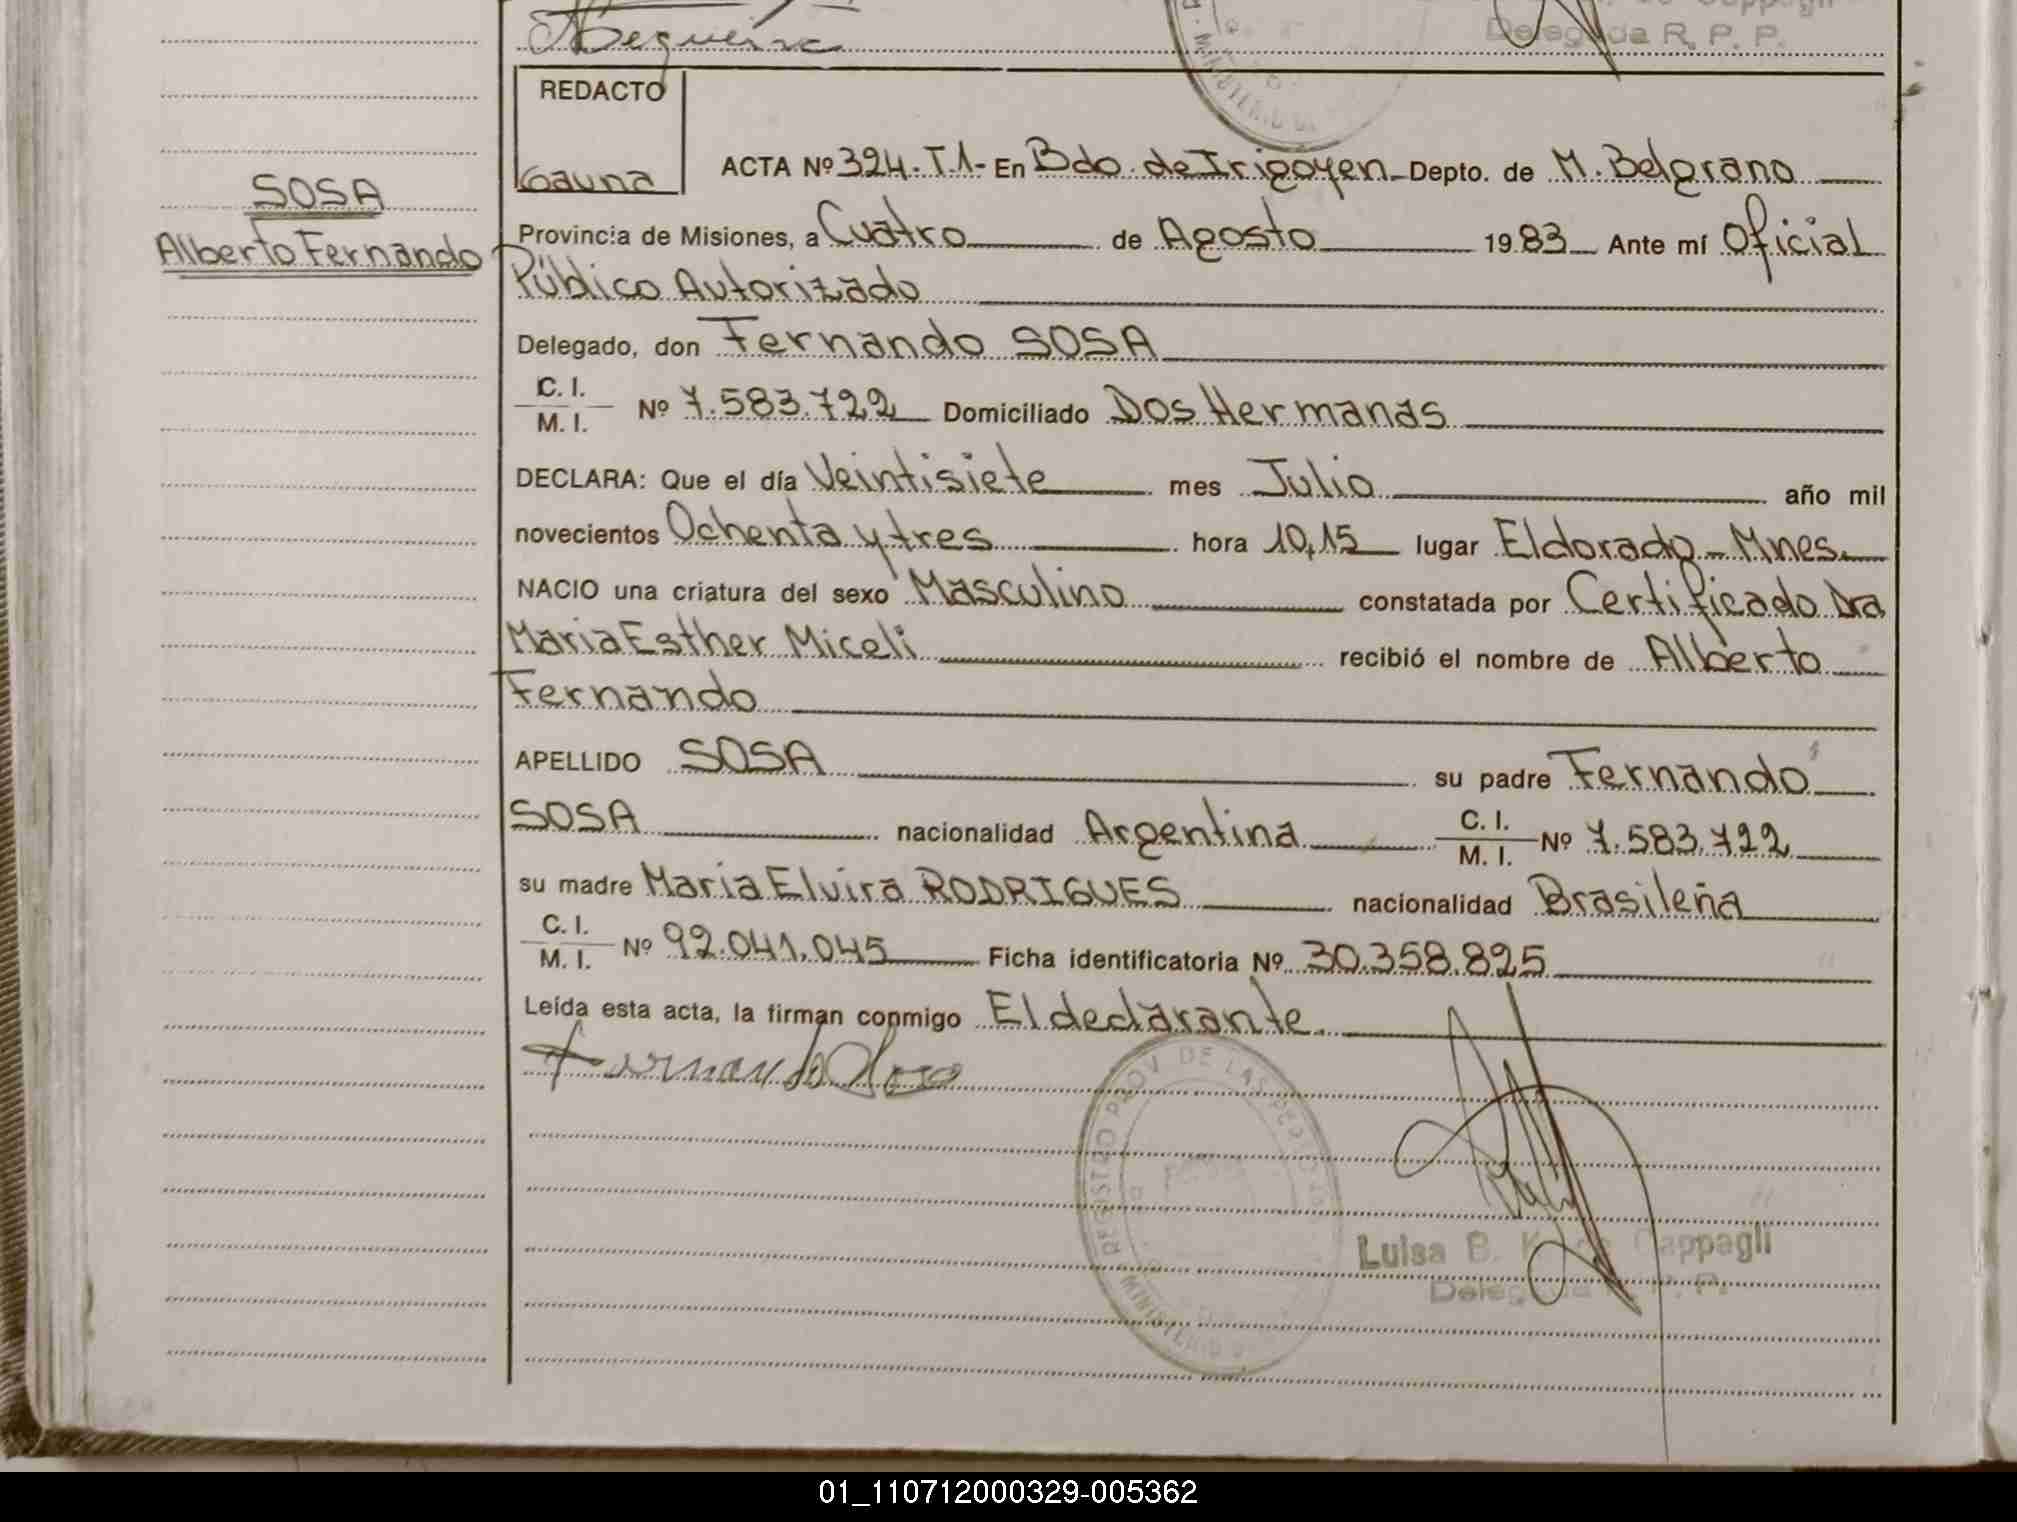 Delegada R. P. P.
REDACTO
Gauna
SOSA
Alberto Fernando
ACTA Nº 324. T.1- En Bdo. de Irigoyen - Depto. de M. Belgrano
Provincia de Misiones, a Cuatro de Agosto 1983 Ante mí Oficial
Público Autorizado
Delegado, don Fernando SOSA
C. I.
M. I. Nº 7.583.722 Domiciliado Dos Hermanas
DECLARA: Que el día Veintisiete mes Julio año mil
novecientos Ochenta y tres hora 10,15 lugar Eldorado - Mnes.
NACIO una criatura del sexo Masculino constatada por Certificado Dra
Maria Esther Miceli recibió el nombre de Alberto
Fernando
APELLIDO SOSA su padre Fernando
SOSA nacionalidad Argentina C. I. M. I. Nº 7.583.722
su madre Maria Elvira RODRIGUES nacionalidad Brasileña
C. I.
M. I. Nº 92.041.045 Ficha identificatoria Nº 30.358.825
Leída esta acta, la firman conmigo El declarante.
Fernando Sosa
REGISTRO PROV DE LAS PERSONAS
MINISTERIO
Luisa B. de Cappagli
Delegada R. P. P.
01_110712000329-005362